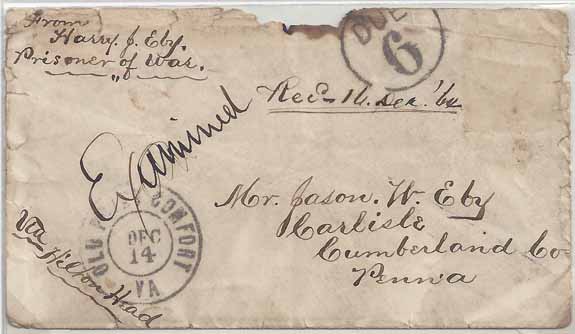 From
Harry. J. Eby.
Prisoner of War.
DUE
6
Rec- 16. Dec. '64
Examined
Mr. Jason. W. Eby
Carlisle
Cumberland Co
Penn'a
OLD P COMFORT
DEC
14
VA
Via Hilton Head